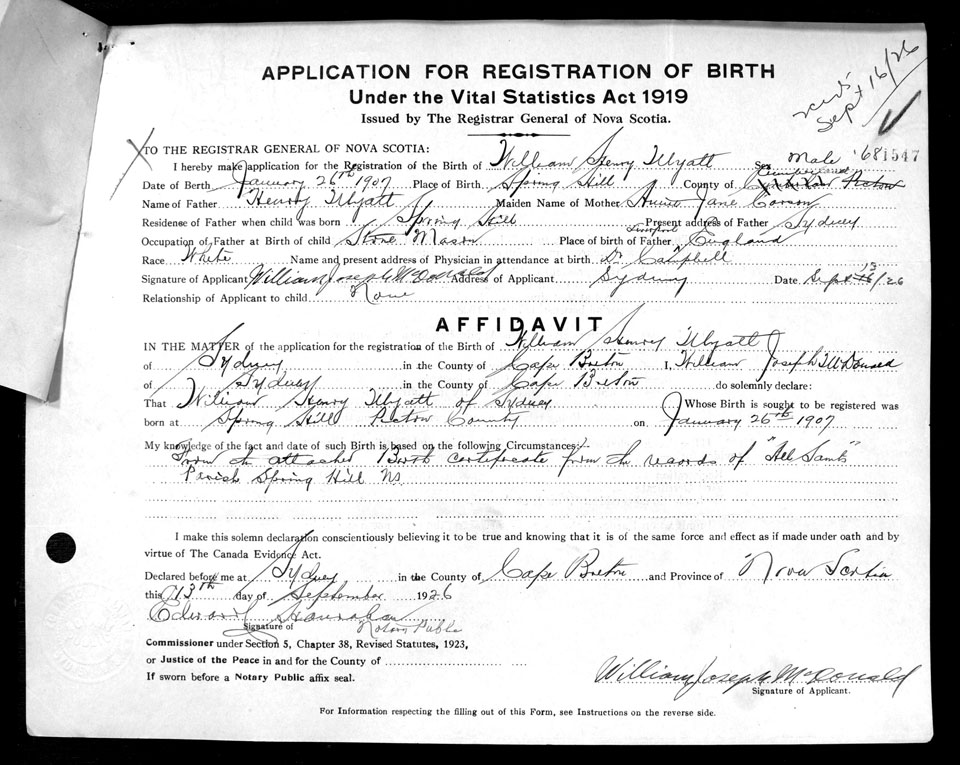 APPLICATION FOR REGISTRATION OF BIRTH
Under the Vital Statistics Act 1919
Issued by The Registrar General of Nova Scotia.
Sept 16/26
TO THE REGISTRAR GENERAL OF NOVA SCOTIA:
I hereby make application for the Registration of the Birth of William Henry Wyatt Sex Male 681547
Cumberland
Date of Berth January 26th 1907 Place of Birth Spring Hill County of Pictou
Name of Father Henry Wyatt Maiden Name of Mother Annie Jane Carson
Residene of Father when child was born Spring Hill Present address of Father Sydney
Occupation of Father at Birth of child Stone Mason Place of birth of Father England
Race White Name and present address of Physician in attendance at birth Dr Campbell
Signature of Applicant William Joseph McDonald Address of Applicant Sydney Date Sept 13/26
Relationship of Applicant to child None
AFFIDAVIT
IN THE MATTER of the application for the registration of the Birth of William Henry Wyatt
of Sydney in the County of Cape Breton I, William Joseph McDonald
of Sydney in the County of Cape Breton do solemnly declare:
That William Henry Wyatt of Sydney Whose Birth is sought to be registered was
born at Spring Hill Pictou County on January 26th 1907
My knowledge of the fact and date of such Birth is based on the following Circumstances:
From the attached Birth certificate from the records of "All Saints"
Parish Spring Hill NS
I make this solemn declaration conscientiously believing it to be true and knowing that it is of the same force and effect as if made under oath and by
virtue of The Canada Evidence Act.
Declared before me at Sydney in the County of Cape Breton and Province of Nova Scotia
this 13th day of September 1926
Edward
Signature of Notary Public
Commissioner under Section 5, Chapter 38, Revised Statutes, 1923,
or Justice of the Peace in and for the County of
If sworn before a Notary Public affix seal.
William Joseph McDonald
Signature of Applicant.
For Information respecting the filling out of this Form, see Instructions on the reverse side.